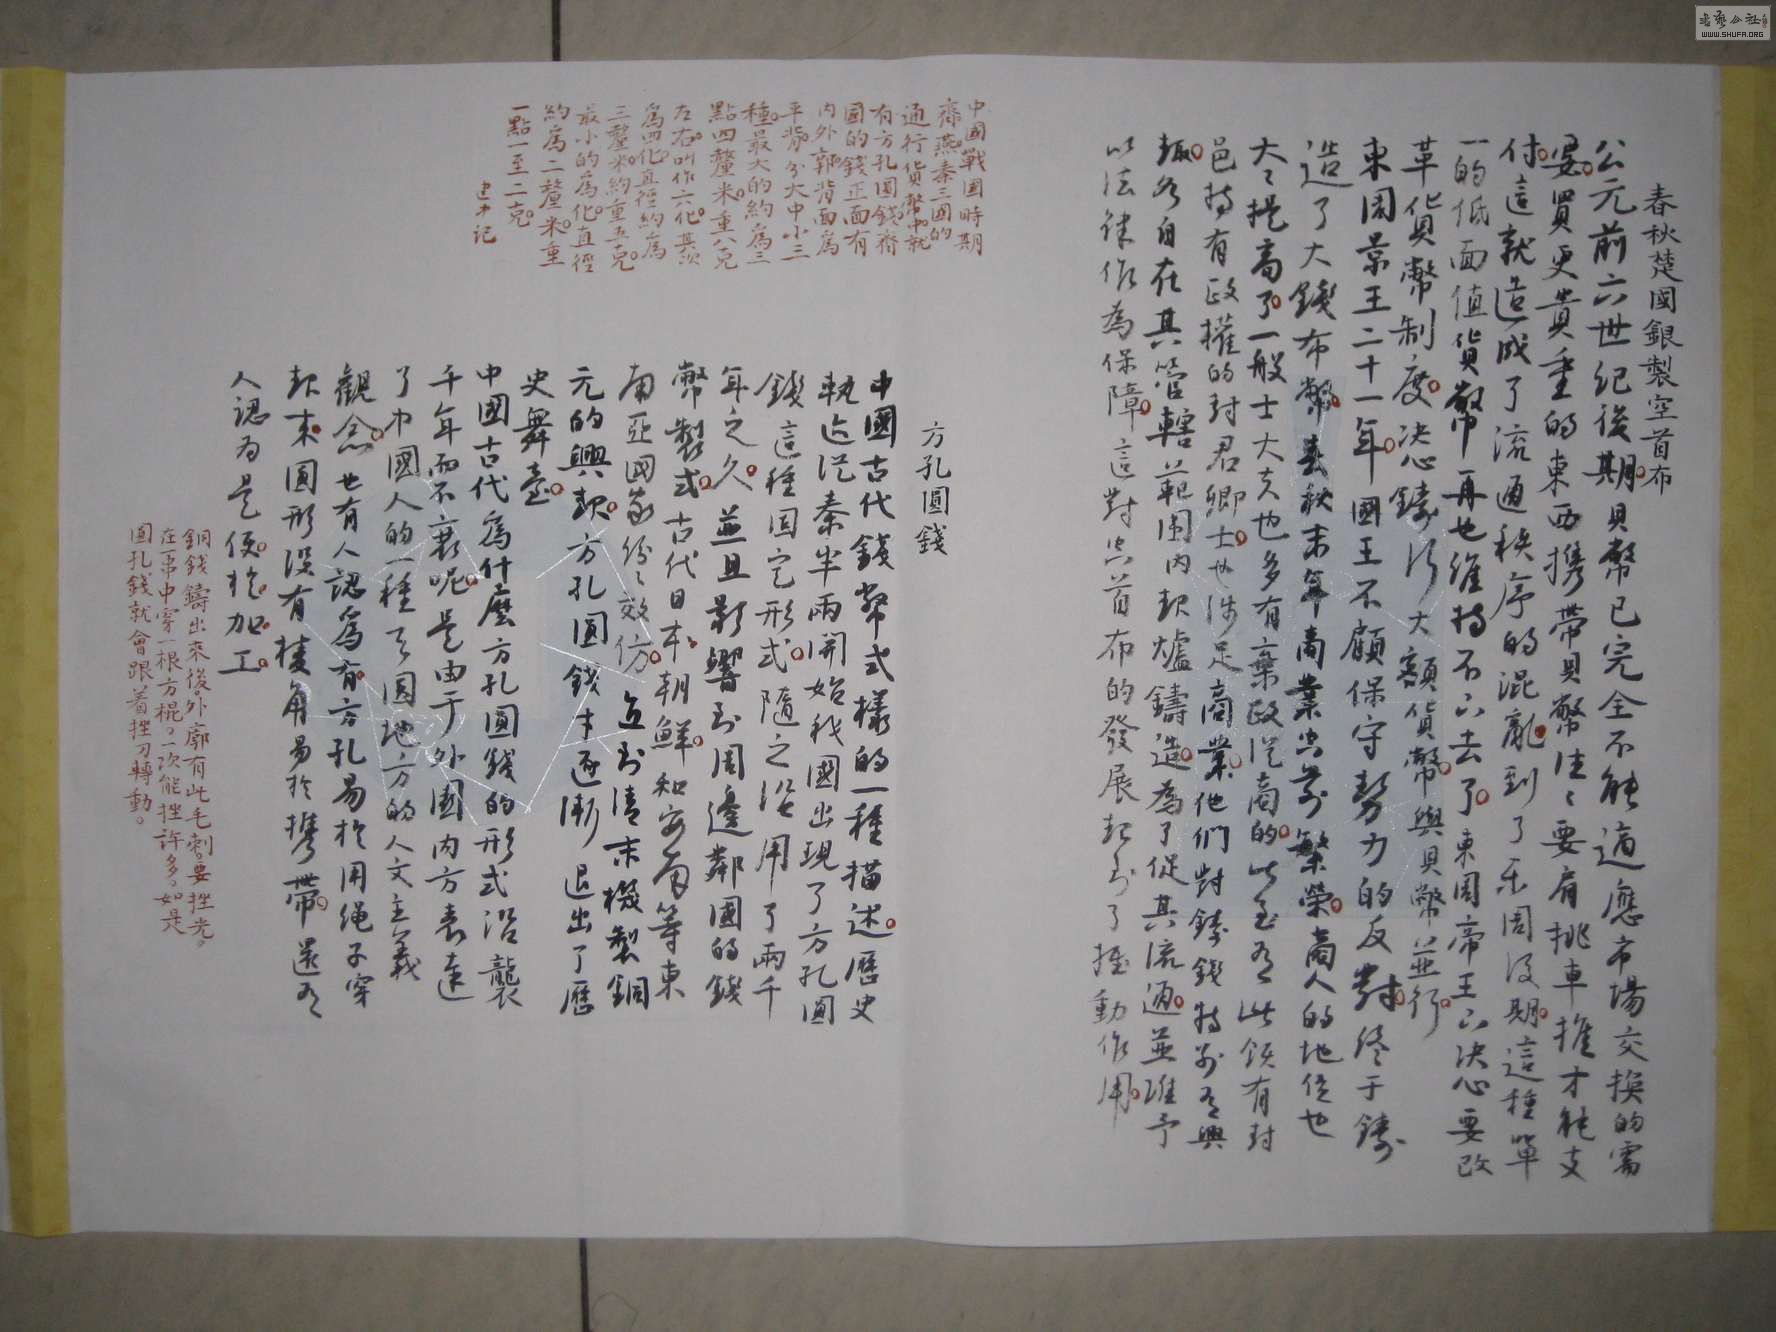 春秋楚國銀製空首布
公元前六世紀後期。貝幣已完全不能適應市場交換的需
要。買更貴重的東西携帶貝幣往々要肩挑車推才能支
付。這就造成了流通秩序的混亂。到了東周後期。這種單
一的低面值貨幣再也維持不下去了。東周帝王下決心要改
革貨幣制度。決心鑄行大額貨幣。與貝幣並行。
東周景王二十一年。國王不顧保守勢力的反對。終于鑄
造了大錢布幣。春秋末年商業空前繁榮。商人的地位也
大々提高了。一般士大夫也多有棄政從商的。此至有些領有封
邑持有政權的封君卿士。也涉足商業。他們對鑄錢特別有興
趣。各自在其管轄範圍内起爐鑄造。為了促其流通。並准予
以法律作為保障。這對空首布的發展起到了推動作用。
方孔圓錢
中國古代錢幣式樣的一種描述。歷史
軌迹從秦半兩開始我國出現了方孔圓
錢這種固定形式。隨之沿用了兩千
年之久。並且影響到周邊鄰國的錢
幣製式。古代日本。朝鮮。和安南等東
南亞國家紛々效仿。直到清末機製銅
元的興起。方孔圓錢才逐漸退出了歷
史舞臺。
中國古代爲什麽方孔圓錢的形式沿襲
千年而不衰呢。是由于外圓内方表達
了中國人的一種天圓地方的人文主義
觀念。也有人認爲有方孔易於用绳子穿
起來。圓形没有棱角易於携帶。還有
人認为是便於加工。
中國戰國時期
齊燕秦三國的
通行貨幣中就
有方孔圓錢。齊
國的錢正面有
内外郭背面爲
平背。分大中小三
種。最大的約爲三
點四釐米。重八克
左右。叫作六化。其次
爲四化。直徑約爲
三釐米。約重五克。
最小的爲化。直徑
約爲二釐米。重
一點一至二克。
銅錢鑄出來後。外廓有些毛刺。要挫光。
在一串中穿一根方棍。一次能挫許多。如是
圓孔錢就會跟着挫刀轉動。
WWW.SHUFA.ORG